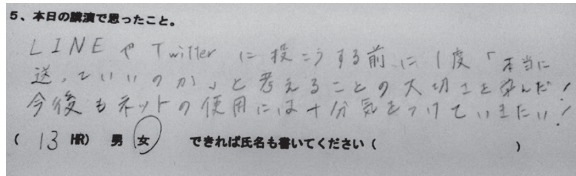 5、本日の講演で思ったこと。
LINEやTwitterに投こうする前に1度「本当に
送っていいのか」と考えることの大切さを学んだ!
今後もネットの使用には十分気をつけていきたい!
( 13 HR) 男 女 できれば氏名も書いてください( )